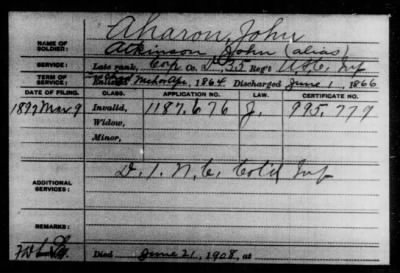 Aharon, John
NAME OF SOLDIER: Atkinson John (alias)
SERVICE: Late rank, Corp Co. D, 35 Reg't U.S.C. Inf
TERM OF SERVICE: Enlisted Apr. 1864 Discharged June 1, 1866
DATE OF FILING. CLASS. APPLICATION NO. LAW. CERTIFICATE NO.
1897 Mar 9 Invalid, 1187.676 J. 995.779
Widow,
Minor,
ADDITIONAL SERVICES: D. 1. N.C. Col'd Inf
REMARKS:
Died June 21, 1908, at